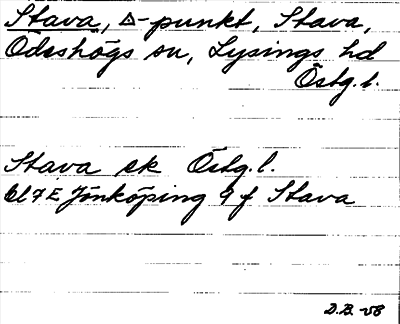 Stava, △-punkt, Stava,
Ödeshögs sn, Lysings hd
Östg.l.
Stava ek Östg.l.
bl 7E Jönköping 9 f Stava
D.B. -58